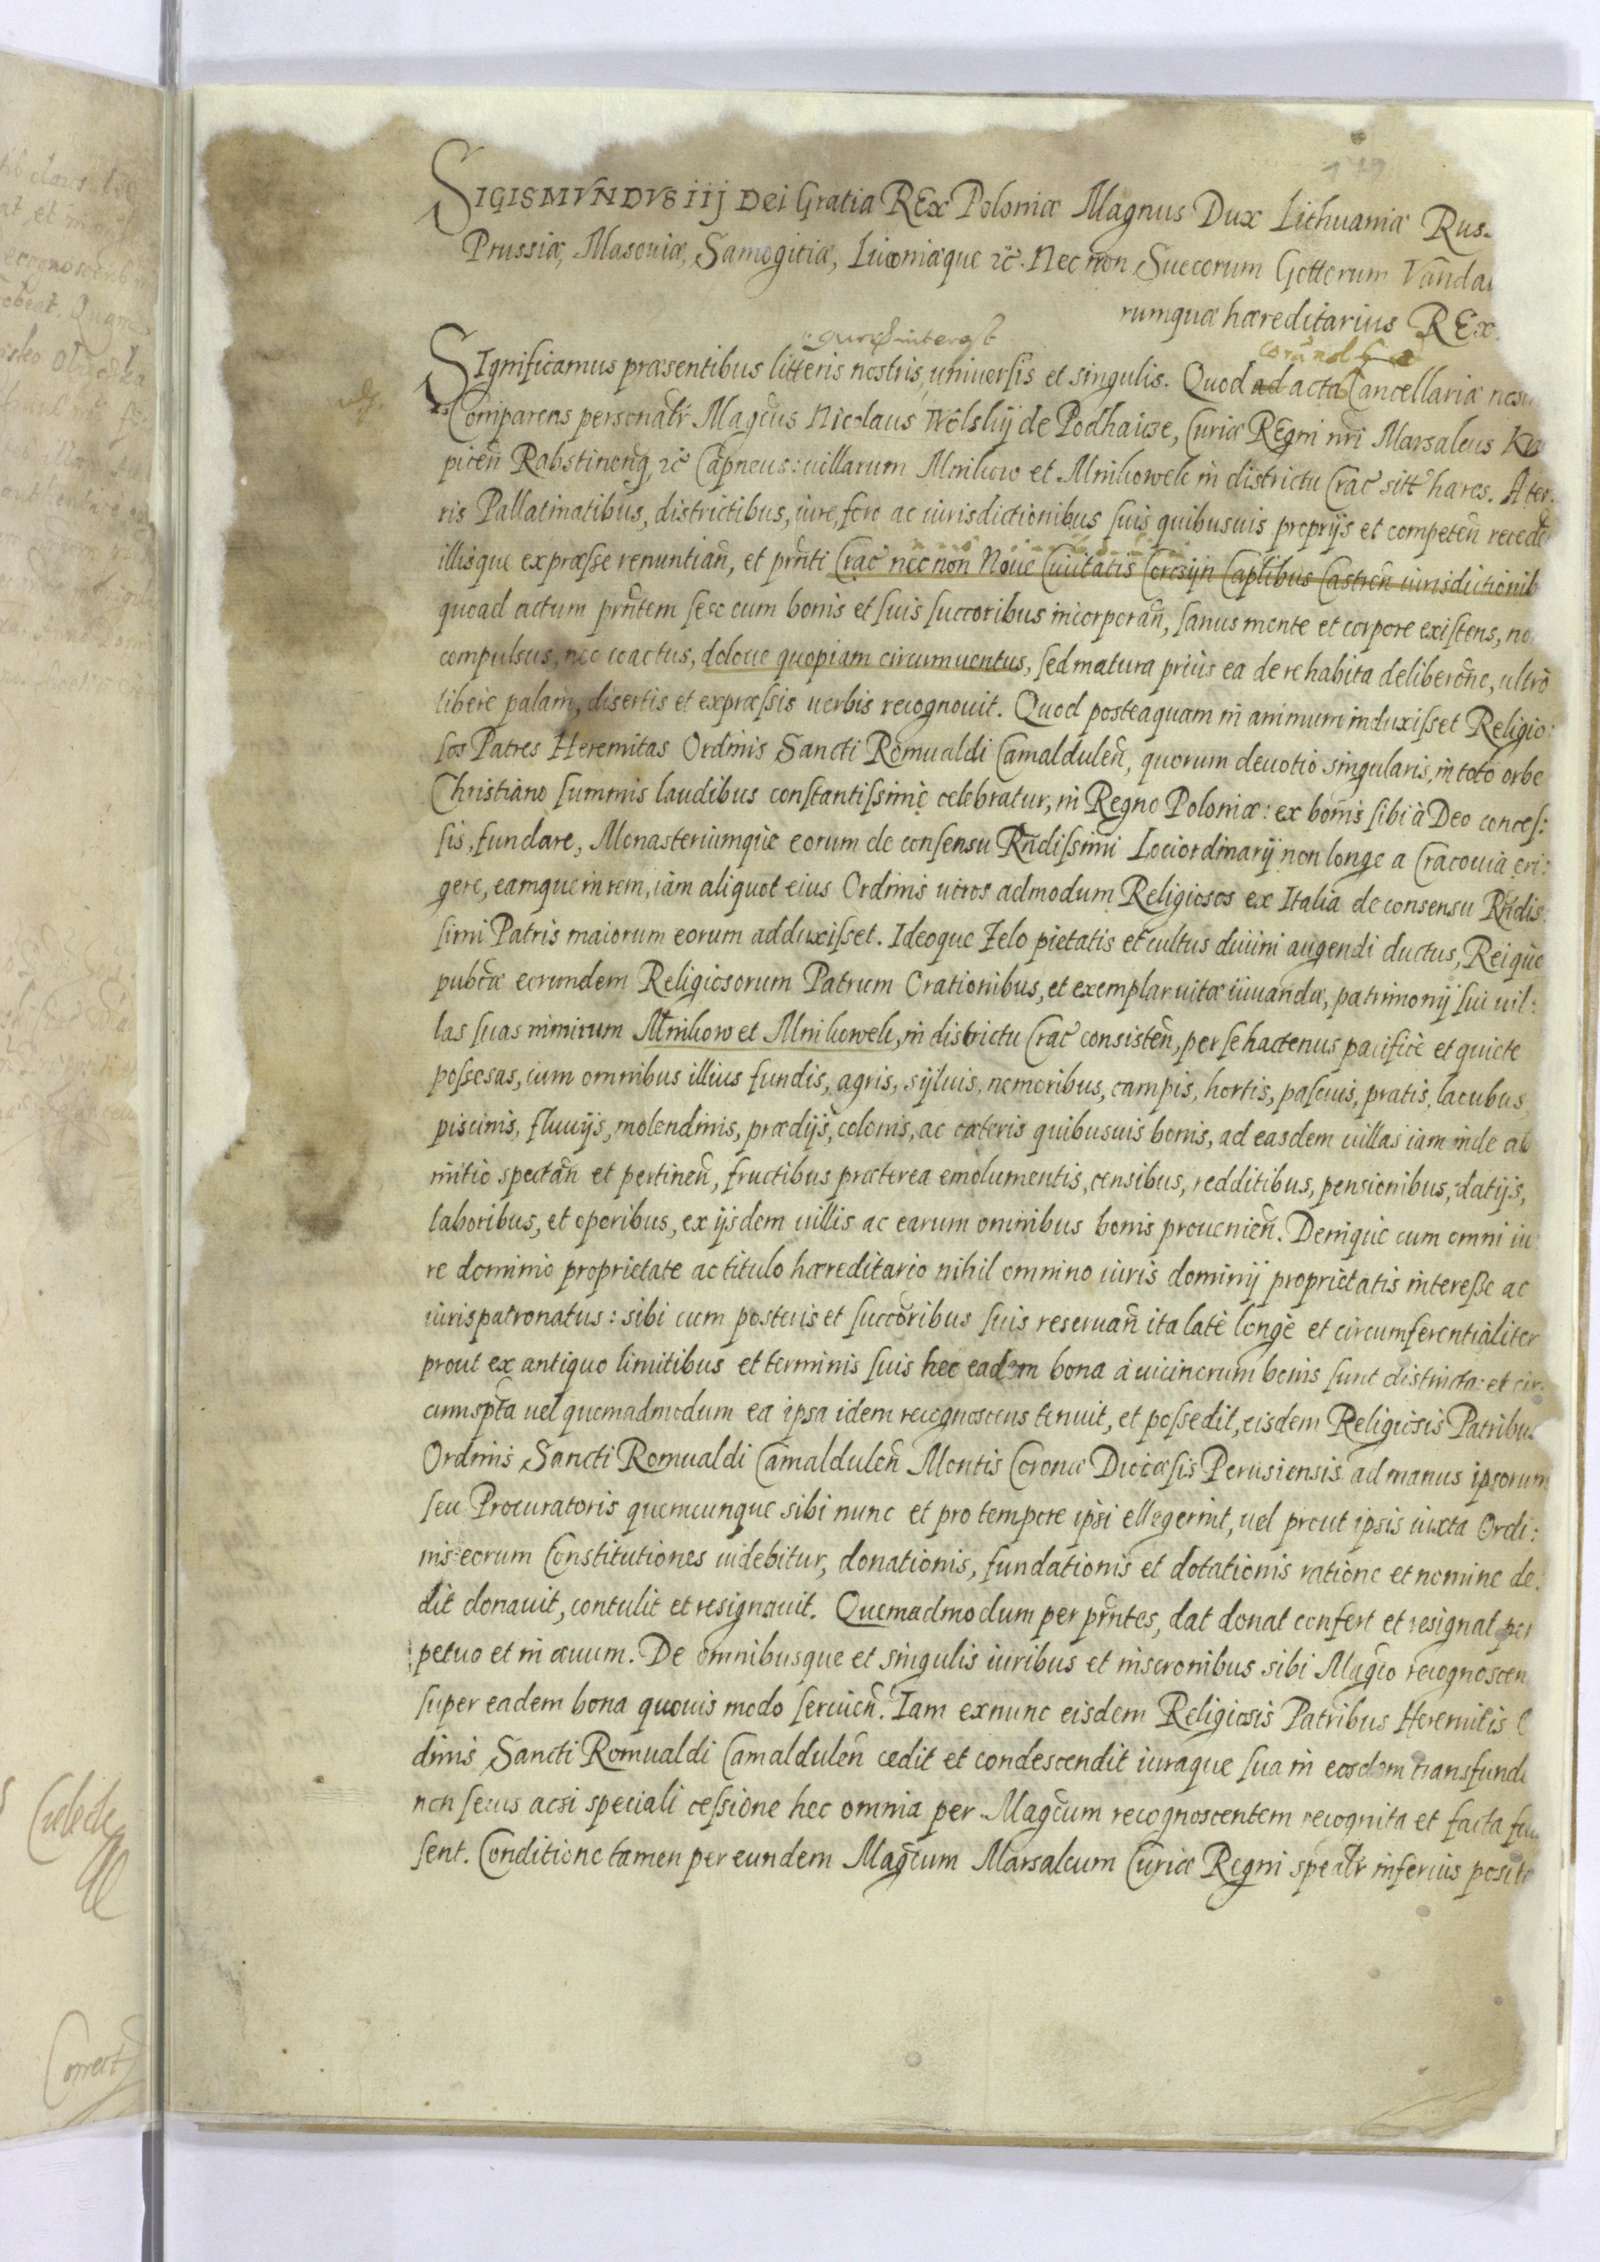 SIGISMVNDVS iij Dei Gratia REx Poloniæ Magnus Dux Lithuaniæ Rus
Prussiæ, Masouiæ, Samogitiæ, Liuoniæque &c. Nec non Suecorum Gottorum Vanda
rumque hæreditarius REx.
quorũ interest
coram
Significamus præsentibus litteris nostris, uniuersis et singulis. Quod ad acta Cancellariæ nos
Comparens personalr̃ Magcus Nicolaus Wolskij de Podhaice, Curiæ REgni nrĩ Marsalcus
picen̄ Rabstinen̄g, &c Capneus: villarum Mnikow et Mnikowek in districtu Crac̃ sitt̃ hæres. A ter:
ris Pallatinatibus, districtibus, iure, foro ac iurisdictionibus suis quibusuis proprijs et competen̄ recede
illisque expræsse renuntian̄, et prñti Crac̃ nec non Noue Ciuitatis Corcsijn Caplibus Castren̄ iurisdictionib
quoad actum prñtem sese cum bonis et suis succoribus incorporan̄, sanus mente et corpore existens, no
compulsus, nec coactus, doloue quopiam circumuentus, sed matura priùs ea de re habita deliberõne, ultrò
liberè palàm, disertis et expræssis uerbis recognouit. Quod posteaquam in animum induxisset Religio:
sos Patres Heremitas Ordinis Sancti Romualdi Camaldulen̄, quorum deuotio singularis, in toto orbe
Christiano summis laudibus constantissimè celebratur, in Regno Poloniæ: ex bonis sibi à Deo conces:
sis, fundare, Monasteriumque eorum de consensu Rñdissimi Lociordinarij non longe a Cracouia eri:
gere, eamque in rem, iam aliquot eius Ordinis uiros admodum Religiosos ex Italia de consensu Rñdis:
simi Patris maiorum eorum adduxisset. Ideoque Zelo pietatis et cultus diuini augendi ductus, Reique
pubcæ eorundem Religiosorum Patrum Orationibus, et exemplar uitæ iuuandæ, patrimonij sui uil:
las suas nimirum Mnikow et Mnikowek, in districtu Crac̃ consisten̄, per se hactenus pacificè et quiete
possesas, cum omnibus illius fundis, agris, sijluis, nemoribus, campis, hortis, pascuis, pratis, lacubus,
piscinis, fluuijs, molendinis, prædijs, colonis, ac cæteris quibusuis bonis, ad easdem uillas iam inde ab
initio spectan̄ et pertinen̄, fructibus præterea emolumentis, censibus, redditibus, pensionibus, datijs,
laboribus, et operibus, ex ijsdem uillis ac earum omnibus bonis prouenien̄. Deniquè cum omni iu
re dominio proprietate ac titulo hæreditario nihil omnino iuris dominij proprietatis interesse ac
iurispatronatus: sibi cum posteris et succoribus suis reseruan̄ ita latè longè et circumferentialiter
prout ex antiquo limitibus et terminis suis hec eadem bona a uicinorum bonis sunt distincta: et cir:
cumspta uel quemadmodum ea ipsa idem recognoscens tenuit, et possedit, eisdem Religiosis Patribus
Ordinis Sancti Romualdi Camaldulen̄ Montis Coronæ Dioecesis Perusiensis ad manus ipsorum
seu Procuratoris quemcunque sibi nunc et pro tempore ipsi ellegerint, uel prout ipsis iuxta Ordi:
nis eorum Constitutiones uidebitur, donationis, fundationis et dotationis ratione et nomine de:
dit donauit, contulit et resignauit. Quemadmodum per prñtes, dat donat confert et resignat per
petuo et in æuum. De omnibusque et singulis iuribus et inscronibus sibi Magco recognoscen
super eadem bona quouis modo seruien̄. Iam ex nunc eisdem Religiosis Patribus Heremitis
dinis Sancti Romualdi Camaldulen̄ cedit et condescendit iuraque sua in eosdem transfund
non secus acsi speciali cessione hec omnia per Magcum recognoscentem recognita et facta
sent. Conditione tamen per eundem Magcum Marsalcum Curiæ Regni spealr̃ inferius posit